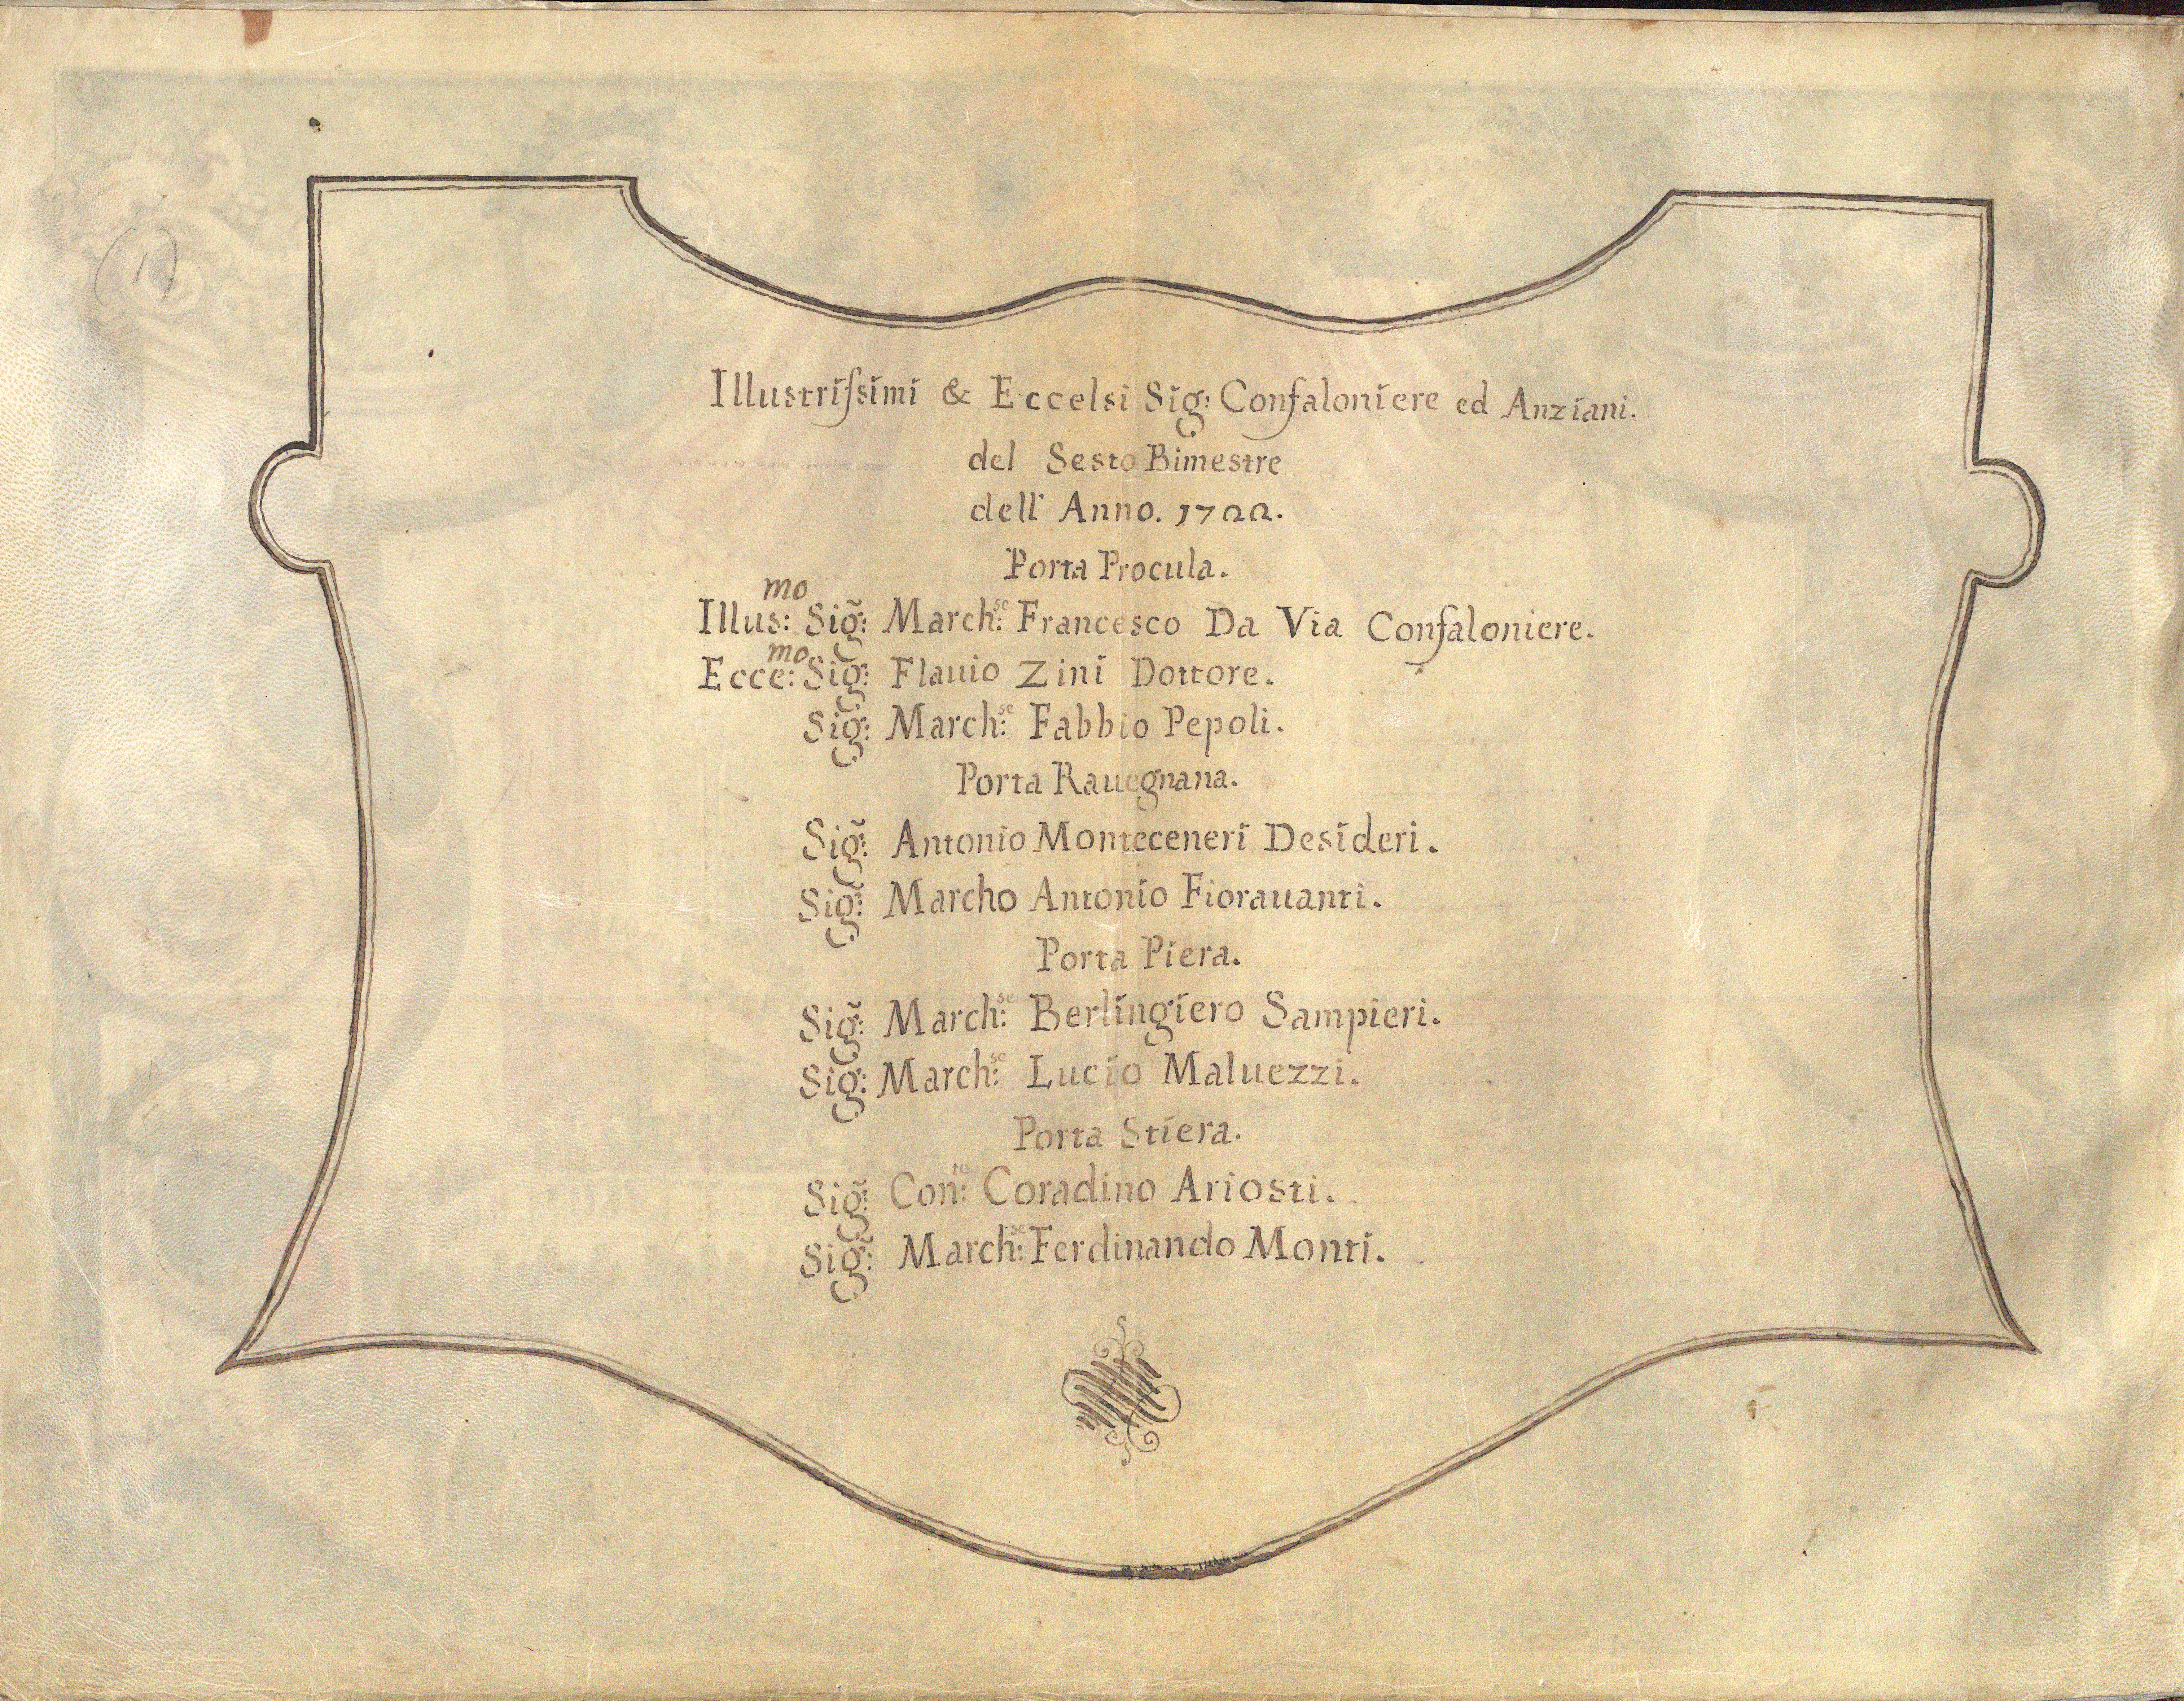 Illustriſsimi & Eccelsi Sig: Confaloniere ed Anziani.
del Sesto Bimestre
dell' Anno. 1722.
Porta Procula.
Illus:mo Sig̃: March:se Francesco Da Via Confaloniere.
Ecce:mo Sig: Flauio Zini Dottore.
Sig: March:se Fabbio Pepoli.
Porta Rauegnana.
Sig̃: Antonio Monteceneri Desideri.
Sig̃: Marcho Antonio Fiorauanti.
Porta Piera.
Sig̃: March:se Berlingiero Sampieri.
Sig: March:se Lucio Maluezzi.
Porta Stiera.
Sig̃: Con:te Coradino Ariosti.
Sig̃: March:se Ferdinando Monti.